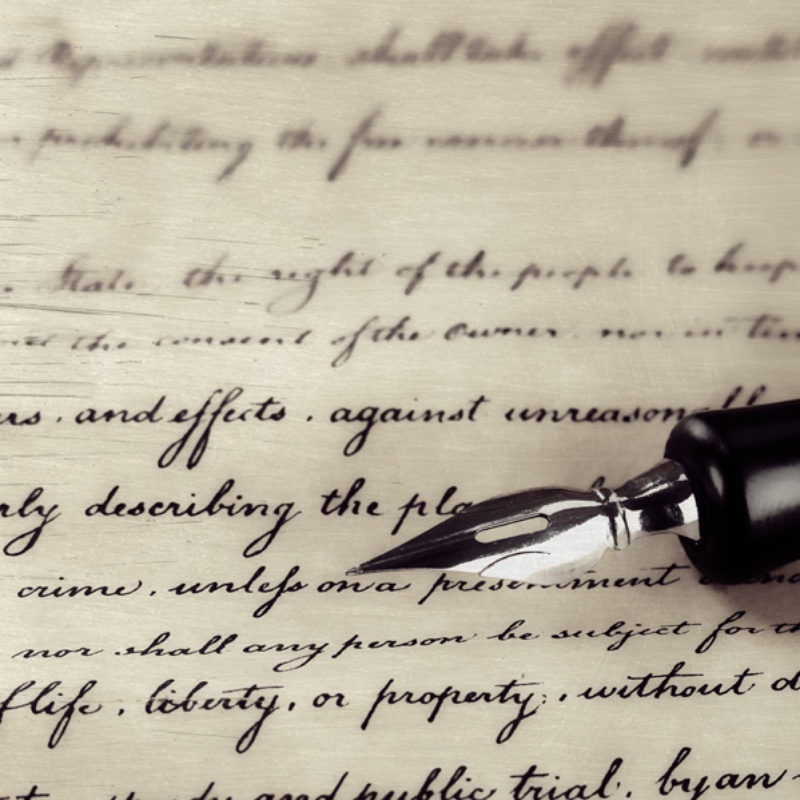 Representations shall take effect until
prohibiting the free thereof or
State the right of the people to keep
the consent of the Owner nor in time
ers. and effects. against unreasonabl
rly describing the pla
crime. unleſs on a presentment
nor shall any person be subject for th
f life. liberty, or property; . without d
and public trial. by an